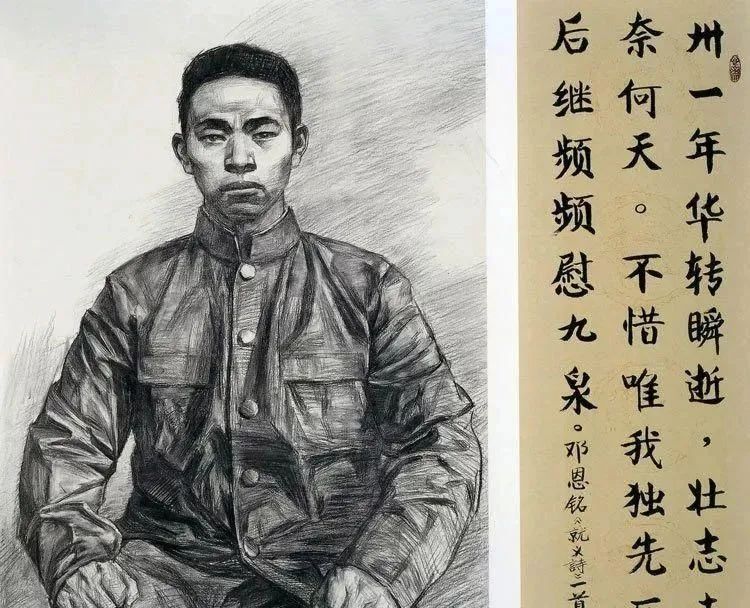 卅一年华转瞬逝，壮志
奈何天。不惜唯我独先
后继频频慰九泉。邓恩铭《就义诗》一首